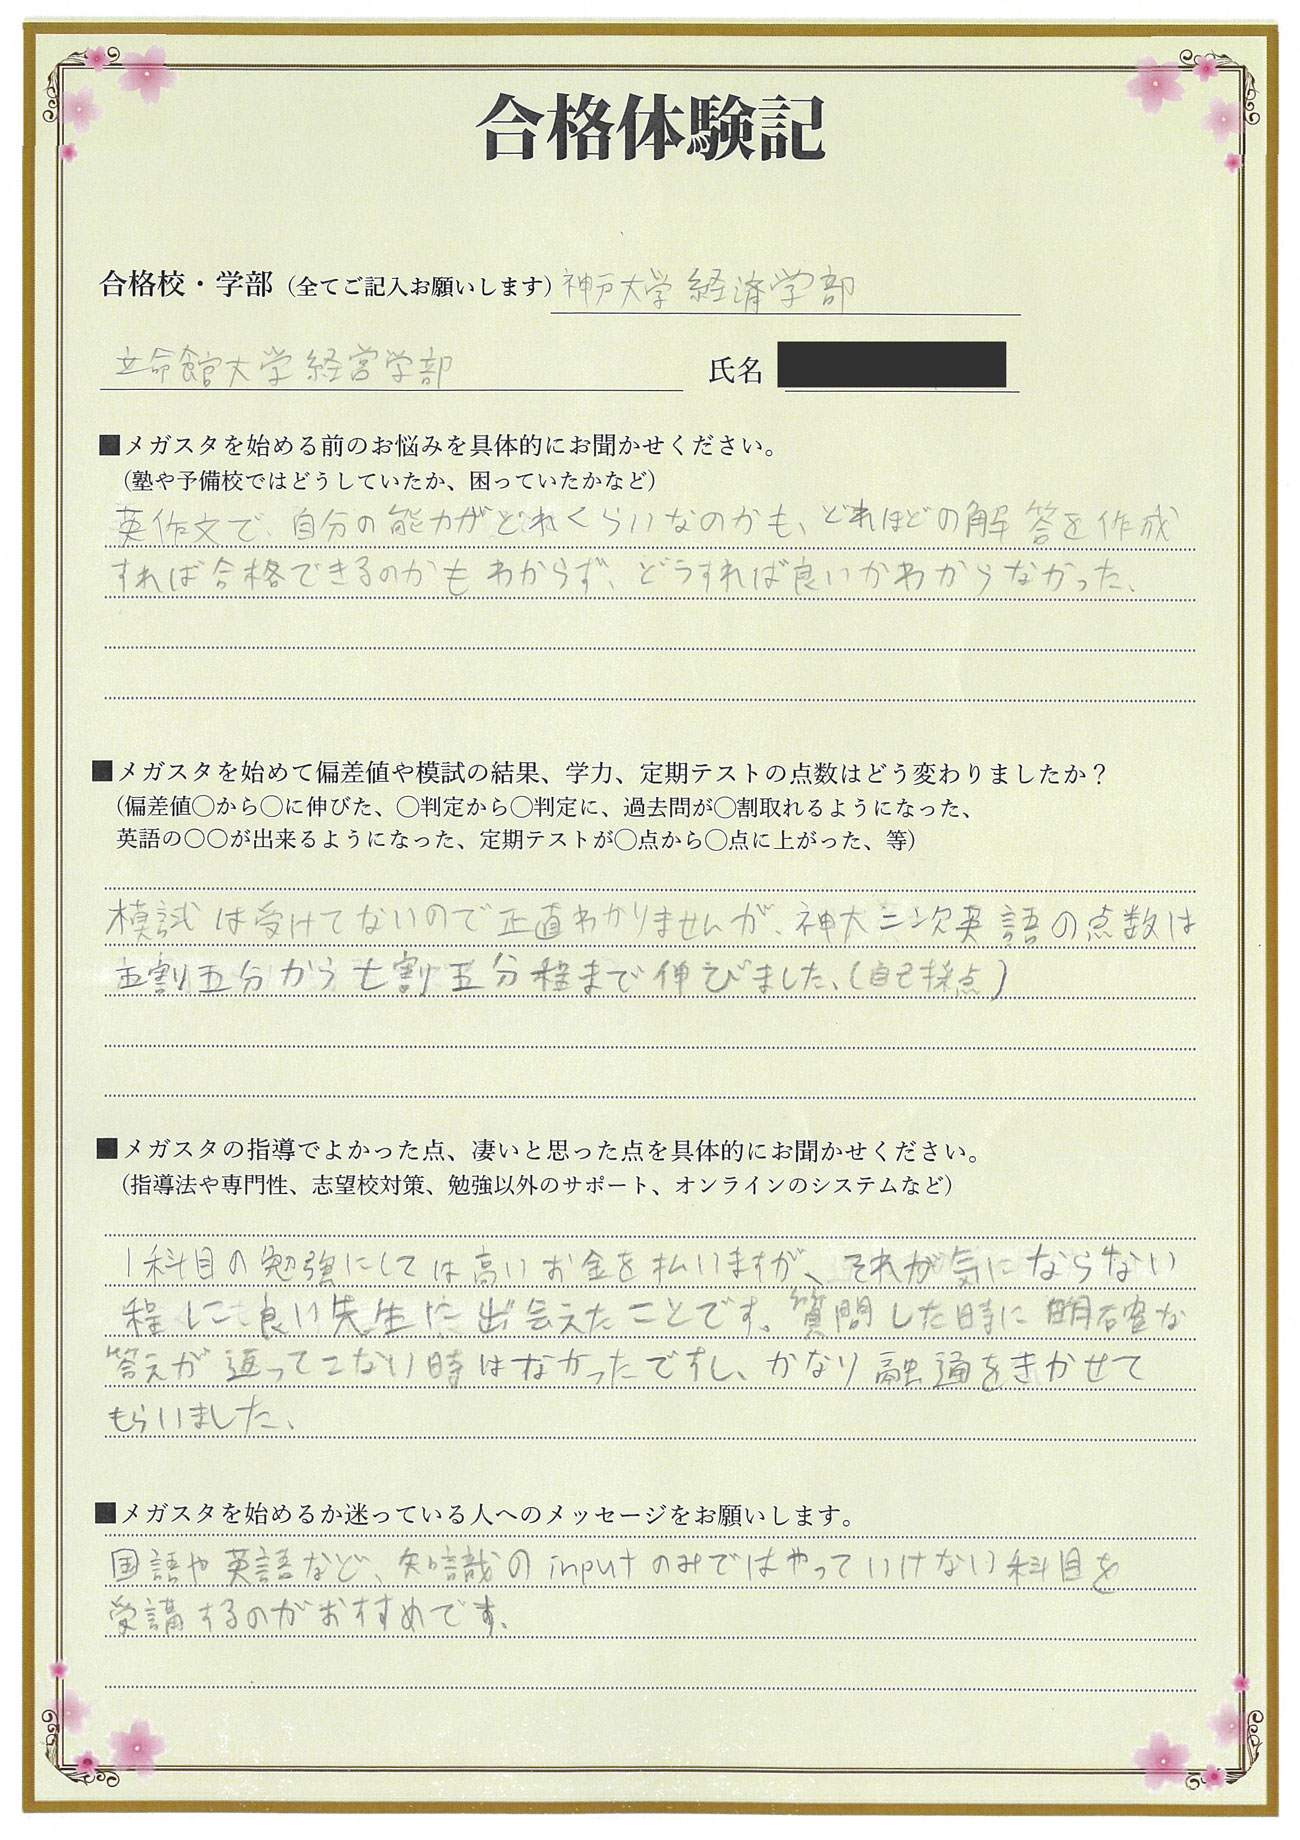 合格体験記
合格校・学部（全てご記入お願いします）神戸大学 経済学部
立命館大学 経営学部 氏名
■メガスタを始める前のお悩みを具体的にお聞かせください。
（塾や予備校ではどうしていたか、困っていたかなど）
英作文で、自分の能力がどれくらいなのかも、どれほどの解答を作成
すれば合格できるのかもわからず、どうすれば良いかわからなかった、
■メガスタを始めて偏差値や模試の結果、学力、定期テストの点数はどう変わりましたか？
（偏差値◯から◯に伸びた、◯判定から◯判定に、過去問が◯割取れるようになった、
英語の◯◯が出来るようになった、定期テストが◯点から◯点に上がった、等）
模試は受けてないので正直わかりませんが、神大二次英語の点数は
五割五分から七割五分程まで伸びました、（自己採点）
■メガスタの指導でよかった点、凄いと思った点を具体的にお聞かせください。
（指導法や専門性、志望校対策、勉強以外のサポート、オンラインのシステムなど）
1科目の勉強にしては高いお金を払いますが、それが気にならない
程に良い先生に出会えたことです。質問した時に明確な
答えが返ってこない時はなかったですし、かなり融通をきかせて
もらいました、
■メガスタを始めるか迷っている人へのメッセージをお願いします。
国語や英語など、知識のinputのみではやっていけない科目を
受講するのがおすすめです。